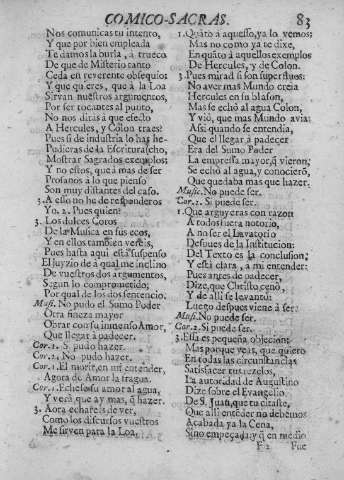 COMICO-SACRAS. 83
Nos comunicas tu intento,
Y que por bien empleada
Te damos la burla, à trueco
De que de Misterio tanto
Ceda en reverente obsequio:
Y que quieres, que à la Loa
Sirvan nuestros argumentos,
Por ser tocantes al punto,
No nos diràs à què efecto
A Hercules, y Colon traes?
Pues si de industria lo has he-
Pudieras de la Escritura(cho,
Mostrar Sagrados exemplos:
Y no estos, que à mas de ser
Profanos à lo que pienso
Son muy distantes del caso.
3. A esso no he de responderos
Yo. 2. Pues quien?
3. Los dulces Coros
De la Musica en sus ecos,
Y en ellos tambien vereis,
Pues hasta aqui està suspenso
El Juyzio de à qual me inclino
De vuestros dos argumentos,
Segun lo comprometido;
Por qual de los dos sentencio.
Mus. No pudo el Sumo Poder
Otra fineza mayor
Obrar con su inmenso Amor,
Que llegar à padecer.
Cor. 1. Si pudo hazer.
Cor. 2. No pudo hazer.
Cor. 1. El morir, en mi entender,
Agora de Amor la fragua.
Cor. 1. Echese su amor al agua,
Y verà, que ay mas, q̃ hazer.
3. Aora echareis de ver,
Como los discursos vuestros
Me sirven para la Loa,
1. Quãto à aquesso, ya lo vemos:
Mas no como ya te dixe,
En quãto à aquellos exemplos
De Hercules, y de Colon.
3. Pues mirad si son superfluos:
No aver mas Mundo creia
Hercules en su blason,
Mas se echò al agua Colon,
Y viò, que mas Mundo avia:
Assi quando se entendia,
Que el llegar à padecer
Era del Sumo Poder
La empressa mayor, q̃ vieron;
Se echò al agua, y conocierõ,
Que quedaba mas que hazer.
Music. No puede ser.
Cor. 2. Si puede ser.
1. Que arguyeras con razon
A todos fuera notorio,
A no ser el Lavatorio
Despues de la Institucion:
Del Texto es la conclusion,
Y està clara, à mi entender:
Pues antes de padecer,
Dize, que Christo cenò,
Y de alli se levantò:
Luego despues viene à ser:
Mus. No puede ser.
Cor. 2. Si puede ser.
3. Essa es pequeña objecion:
Mas porque veais, que quiero
En todas las circunstancias
Satisfacer tus rezelos,
La autoridad de Augustino
Dize sobre el Evangelio
De S. Juan, que tu citaste,
Que alli entẽder no debemos
Acabada ya la Cena,
Sino empeçada; y q̃ en medio
F 2 Fue